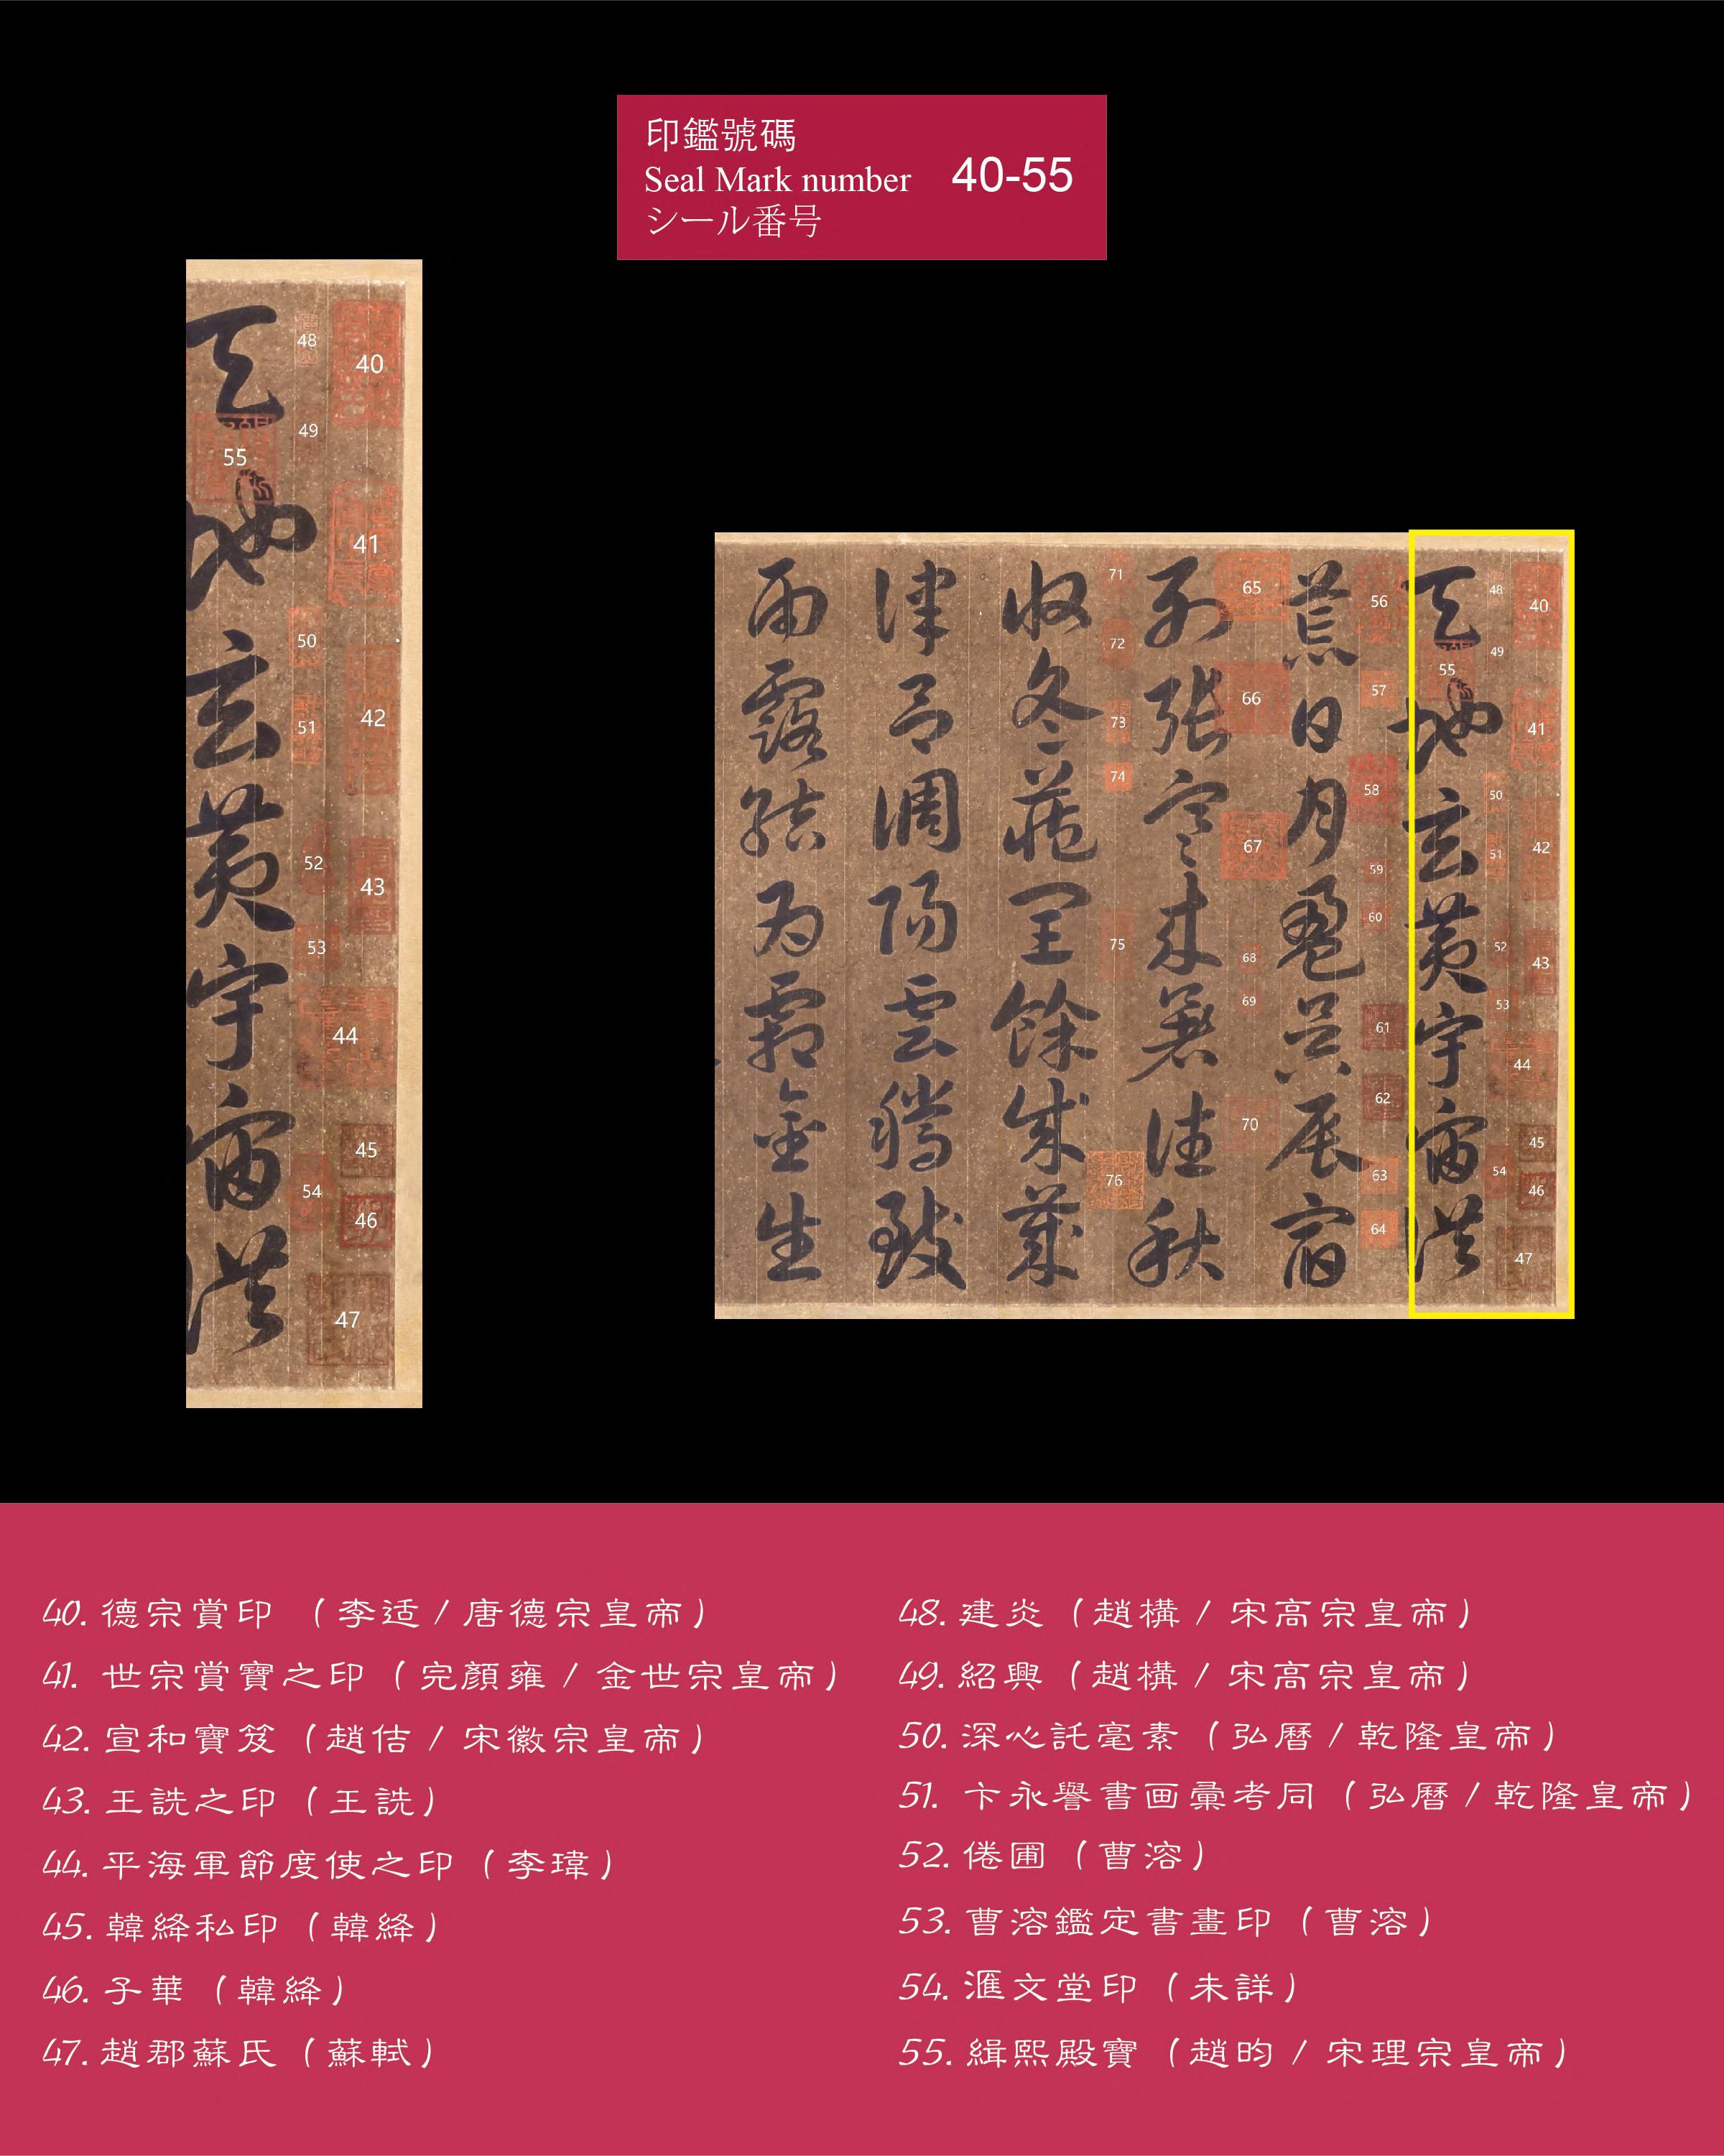 印鑑號碼
Seal Mark number 40-55
シール番号
48
40
49
55
41
50
51
42
52
43
53
44
45
54
46
47
天地玄黃宇宙洪
荒日月盈昃辰宿
列張寒來暑往秋
收冬藏閏餘成歲
律呂調陽雲騰致
雨露結為霜金生
71
65
56
48
40
72
49
55
66
57
73
41
74
58
50
67
51
42
59
60
75
52
43
68
69
53
61
44
62
70
45
63
54
76
46
64
47
40. 德宗賞印 （李适 / 唐德宗皇帝）
41. 世宗賞寶之印（完顏雍 / 金世宗皇帝）
42. 宣和寶笈（趙佶 / 宋徽宗皇帝）
43. 王詵之印（王詵）
44. 平海軍節度使之印（李瑋）
45. 韓絳私印（韓絳）
46. 子華（韓絳）
47. 趙郡蘇氏（蘇軾）
48. 建炎（趙構 / 宋高宗皇帝）
49. 紹興（趙構 / 宋高宗皇帝）
50. 深心託毫素（弘曆 / 乾隆皇帝）
51. 卞永譽書画彙考同（弘曆 / 乾隆皇帝）
52. 倦圃（曹溶）
53. 曹溶鑑定書畫印（曹溶）
54. 滙文堂印（未詳）
55. 緝熙殿寶（趙昀 / 宋理宗皇帝）